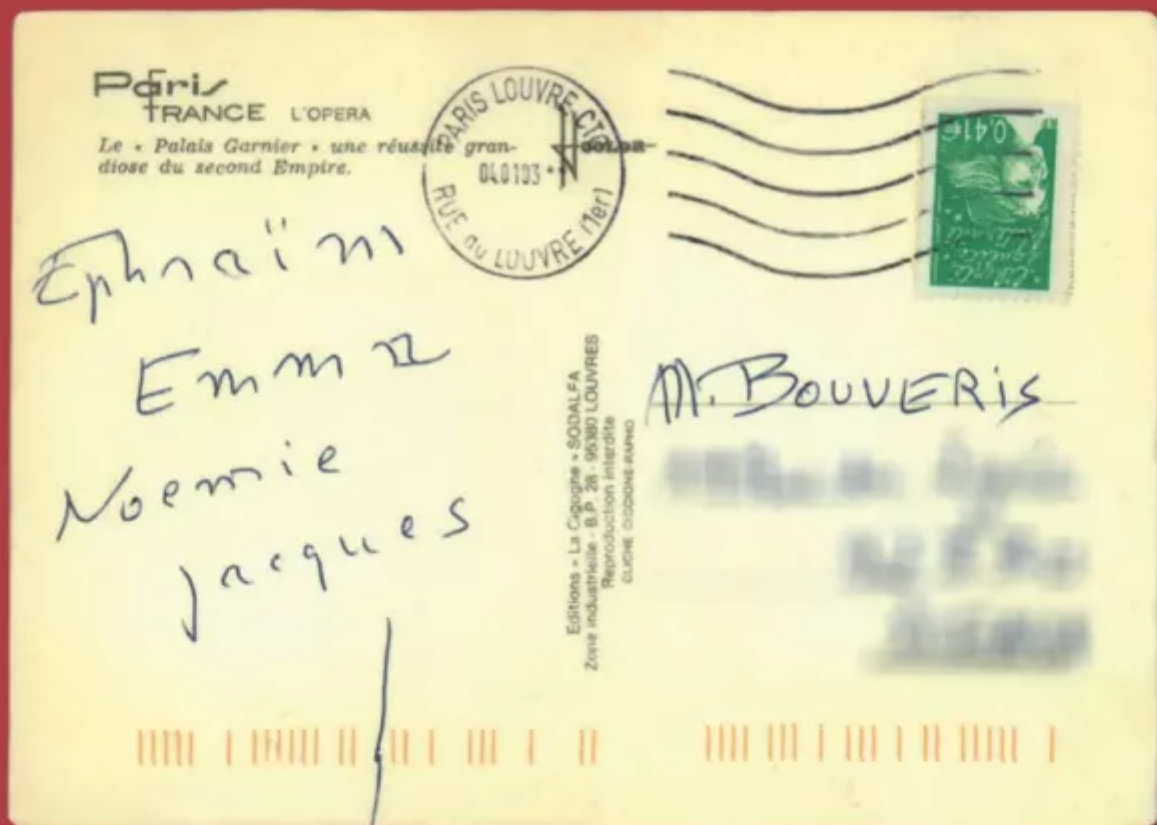 Paris
FRANCE L'OPERA
Le « Palais Garnier » une réussite gran-
diose du second Empire.
PARIS LOUVRE CTC
040103
RUE du LOUVRE (1er)
0,41€
Ephraïm
Emma
Noemie
Jacques
Editions « La Cigogne » SODALFA
Zone industrielle - B.P. 28 - 95380 LOUVRES
Reproduction interdite
CLICHE CICCIONE-RAPHO
M. BOUVERIS